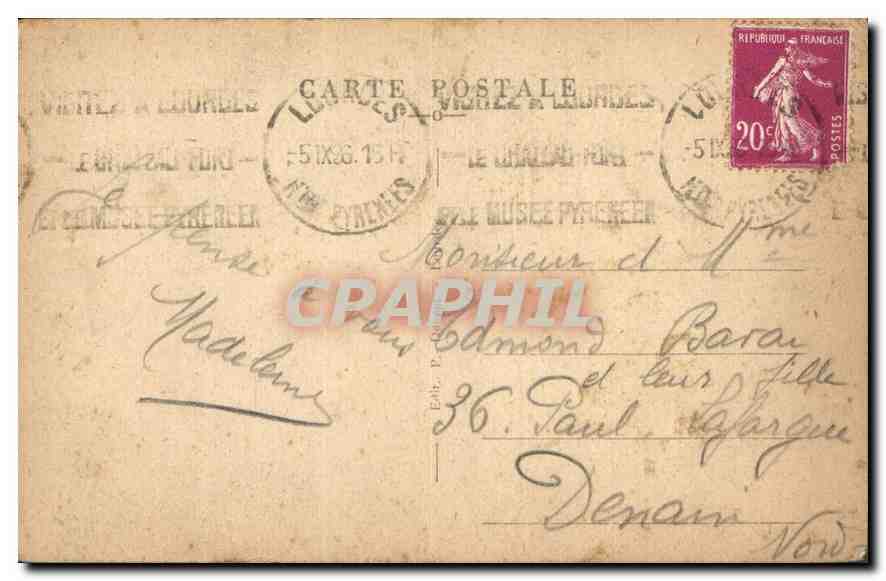 CARTE POSTALE
REPUBLIQUE FRANÇAISE
20c
POSTES
VISITEZ A LOURDES
LE CHATEAU-FORT
ET LE MUSEE PYRENEEN
LOURDES
5 IX 36
Htes PYRENEES
VISITEZ A LOURDES
LE CHATEAU-FORT
ET LE MUSEE PYRENEEN
LOURDES
5 IX
Htes PYRENEES
Je pense
à vous
Madeleine
Monsieur et Mme
Edmond Barai
et leur fille
36. Paul Lafargue
Denain
Nord
Edit. P.
CPAPHIL